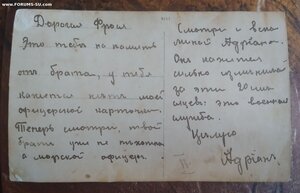 www.FORUMS-SU.com
Дорогая Фрося
Это тебе на память
от брата, у тебя
кажется нету моей
офицерской карточки.
Теперь смотри, твой
брат уже не пехотный
а морской офицер.
Смотри и вспо-
минай Адриана.
Он кажется
сильно изменился
за эти 20 лет
службы: это военная
служба.
Целую
Адриан